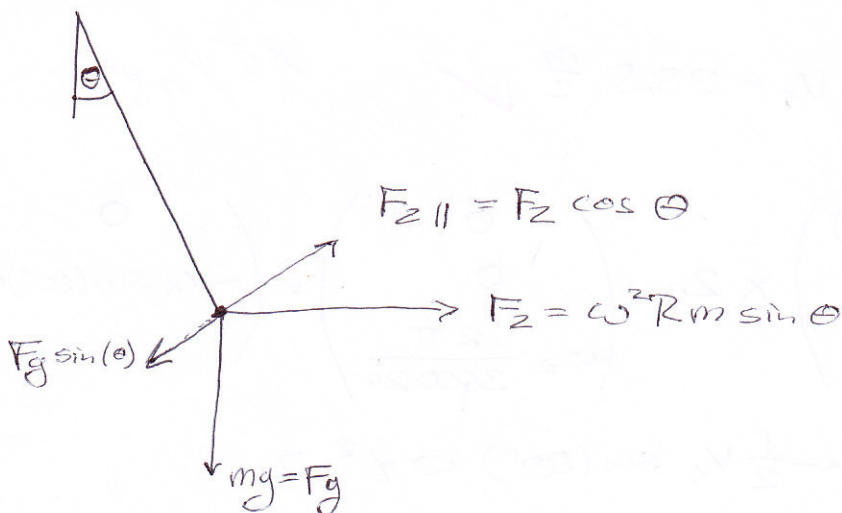 Θ
F_Z∥ = F_Z cos Θ
F_Z = ω²Rm sin Θ
F_g sin(Θ)
mg = F_g